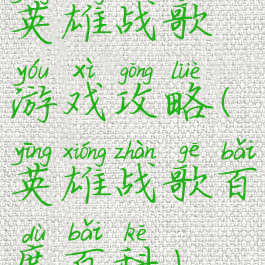 英雄战歌
yóu xì gōng lüè
游戏攻略(
yīng xióng zhàn gē bǎi
英雄战歌百
dù bǎi kē
度百科)